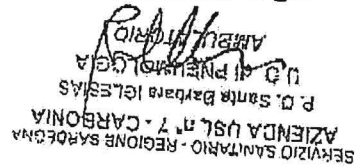 SERVIZIO SANITARIO - REGIONE SARDEGNA
AZIENDA USL n° 7 - CARBONIA
P.O. Santa Barbara IGLESIAS
U.O. di PNEUMOLOGIA
AMBULATORIO